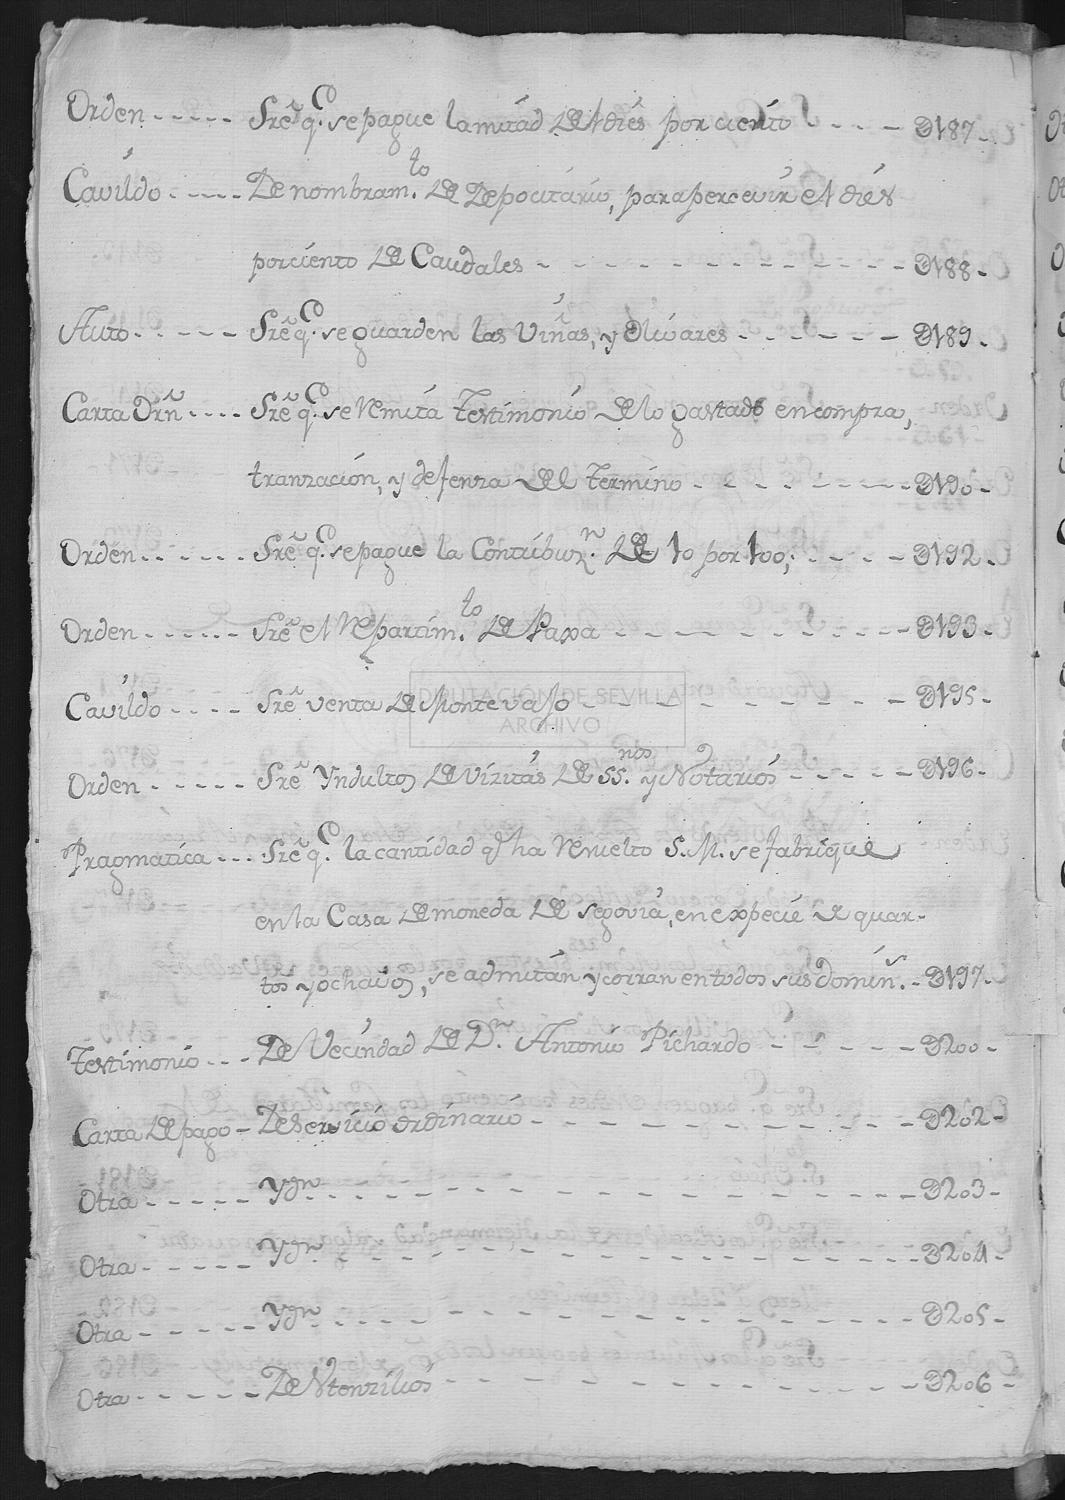 Orden ----- Sre̅ q.e se pague la mitad del dies por ciento ---- D187.
Cavildo ---- De nombram.to de Depocitario, para percevir el dies
porciento de Caudales ---- D188-
Auto ---- Sre̅ q.e se guarden las Viñas, y Olivares ---- D189.
Carta Orn̅ ---- Sre̅ q.e se remita Testimonio de lo gastado en compra,
tranzacion, y defenza del Termino ---- D190-
Orden ---- Sre̅ q.e se pague la Contribuz.n de 10 por 100; ---- D192.
Orden ---- Sre̅ el Repartim.to de Paxa ---- D193-
Cavildo ---- Sre̅ venta de Monte vajo ---- D195-
DIPUTACIÓN DE SEVILLA
ARCHIVO
Orden ---- Sre̅ Yndultos de Vizitas de SS.nos y Notarios ---- D196-
Pragmatica --- Sre̅ q.e la cantidad q.e ha resuelto S. M. se fabrique
en la Casa de moneda de Segovia, en expecie de quar-
tos y ochavos, se admitan y corran en todos sus Domin.s - D197-
Testimonio --- De Vecindad de D.n Antonio Pichardo ---- D200-
Carta de pago - De Servicio ordinario ---- D202-
Otra ---- Ygn ---- D203-
Otra ---- Ygn ---- D204-
Otra ---- Ygn ---- D205-
Otra ---- De Vtenzilios ---- D206-